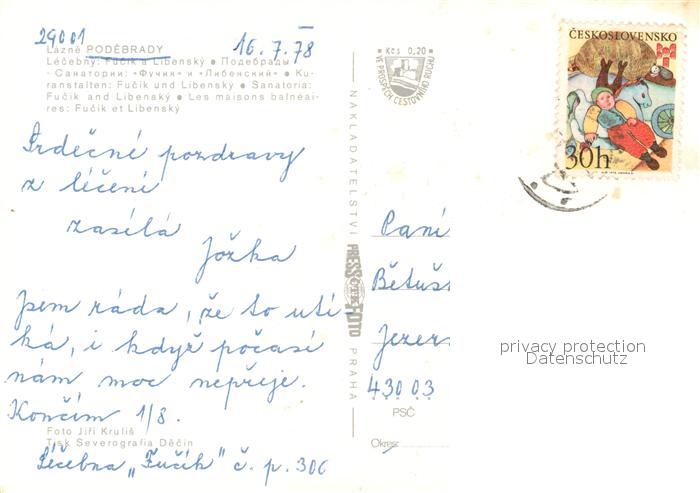 29001
16.7.78
Lázně PODĚBRADY
Léčebny: Fučík a Libenský • Подебрады
- Санатории: «Фучик» и «Либенский» • Ku-
ranstalten: Fučík und Libenský • Sanatoria:
Fučík and Libenský • Les maisons balnéai-
res: Fučík et Libenský
Srdečné pozdravy
z léčení
zasílá
Jožka
Jsem ráda, že to utí-
ká, i když počasí
nám moc nepřeje.
Končím 1/8.
Foto Jiří Kruliš
Tisk Severografia Děčín
Léčebna „Fučík" č. p. 306
NAKLADATELSTVÍ
PRESSFOTO
PRAHA
Kčs 0,20
VE PROSPĚCH CESTOVNÍHO RUCHU
ČESKOSLOVENSKO
30h
Paní
Jezer
430 03
PSČ
Okres
privacy protection
Datenschutz